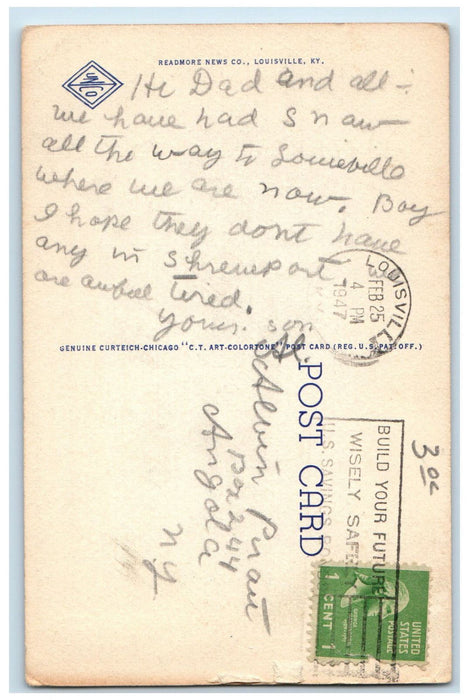 READMORE NEWS CO., LOUISVILLE, KY.
Hi Dad and all -
we have had Snow
all the way to Louieville
where we are now. Boy
I hope they dont have
any in Shreveport we
are awful tired.
Yours. son
Al.
GENUINE CURTEICH-CHICAGO "C.T. ART-COLORTONE" POST CARD (REG. U.S. PAT. OFF.)
LOUISVILLE
FEB 25
4 PM
1947
POST CARD
Alvin
Box 244
Angola
NY
BUILD YOUR FUTURE
WISELY SAFELY
U.S. SAVINGS BONDS
30c
UNITED
STATES
POSTAGE
1 CENT 1